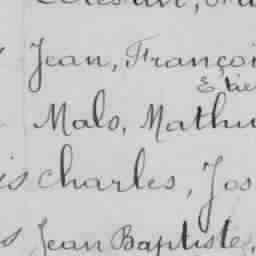 Jean, Françoi
Malo, Mathu
is Charles, Jos
s Jean Baptiste,